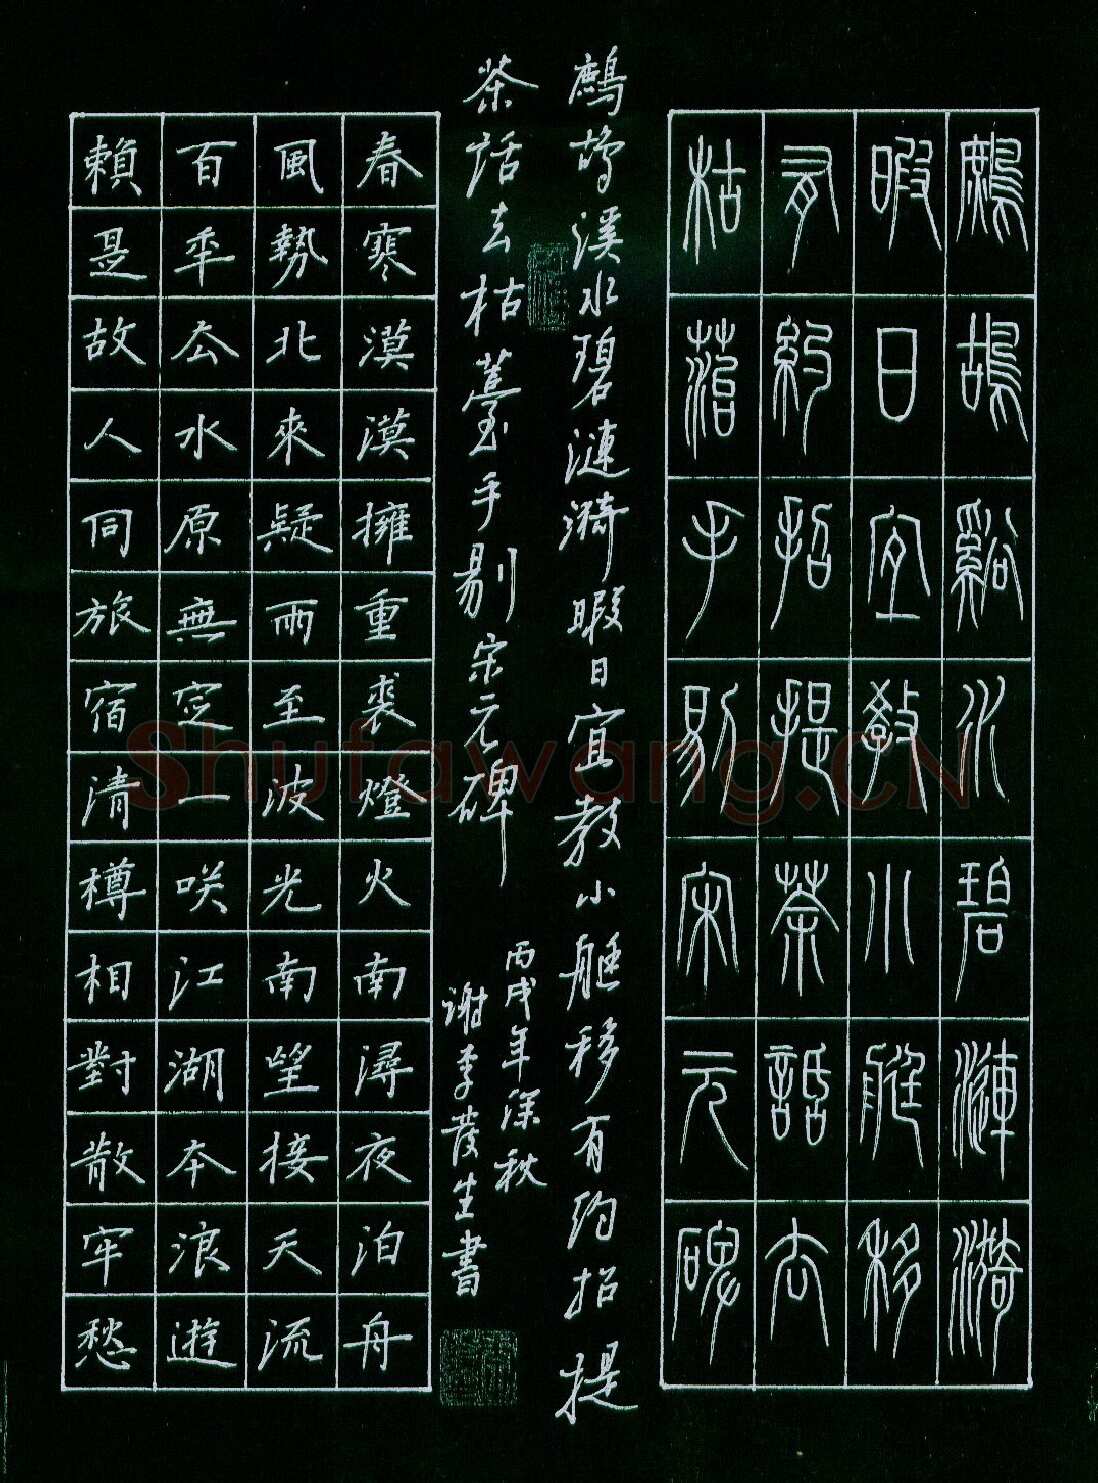 鷓鴣谿水碧漣漪
暇日宜教小艇移
有約招提茶話去
枯菭手剔宋元碑
鷓鴣溪水碧漣漪暇日宜教小艇移有約招提
茶話去枯薹手剔宋元碑
丙戌年深秋
謝季生書
春寒漠漠擁重裘燈火南潯夜泊舟
風勢北來疑雨至波光南望接天流
百年云水原無定一咲江湖本浪遊
賴是故人同旅宿清樽相對散牢愁
Shufawang.CN